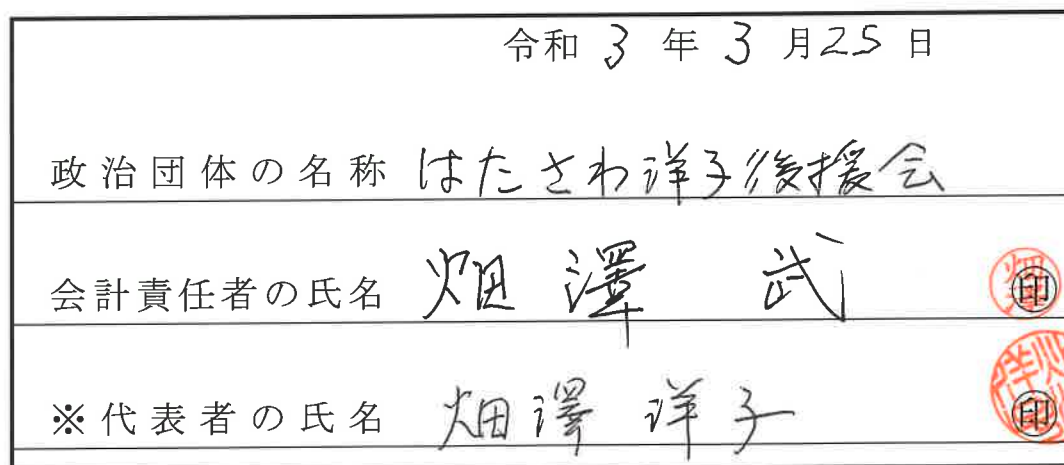 令和 3 年 3 月 25 日
政治団体の名称 はたさわ洋子後援会
会計責任者の氏名 畑澤 武 印
※代表者の氏名 畑澤 洋子 印